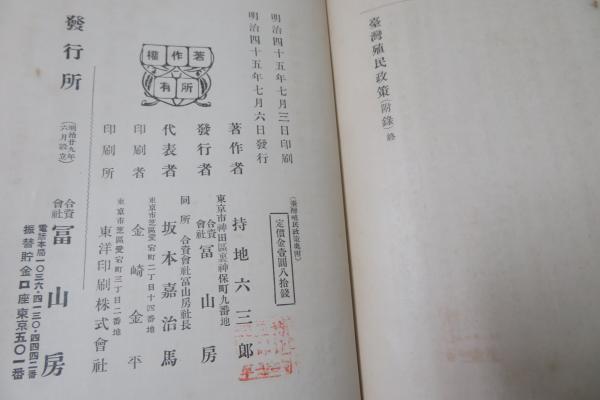 臺灣殖民政策(附錄)終
明治四十五年七月三日印刷
明治四十五年七月六日發行
著作權所有
(臺灣殖民政策奧附)
定價金壹圓八拾錢
著作者 持地六三郎
東京市神田區裏神保町九番地
發行者 合資會社 冨山房
同所 合資會社冨山房社長
代表者 坂本嘉治馬
東京市芝區愛宕町二丁目十四番地
印刷者 金崎金平
東京市芝區愛宕町三丁目二番地
印刷所 東洋印刷株式會社
發行所 (明治廿九年六月設立) 合資會社 冨山房
電話本局一〇三六・四一三〇・四四四二番
振替貯金口座東京五〇一番